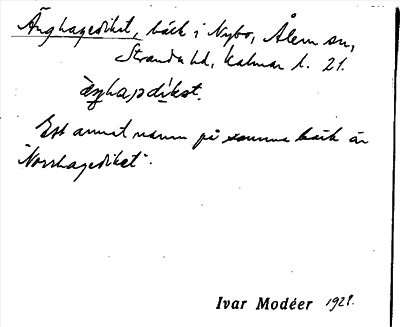 Änghagediket, bäck i Nybo, Ålem sn,
Stranda hd, Kalmar l. 21.
Ett annat namn på samma bäck är
"Norrhagediket".
Ivar Modéer 1921.